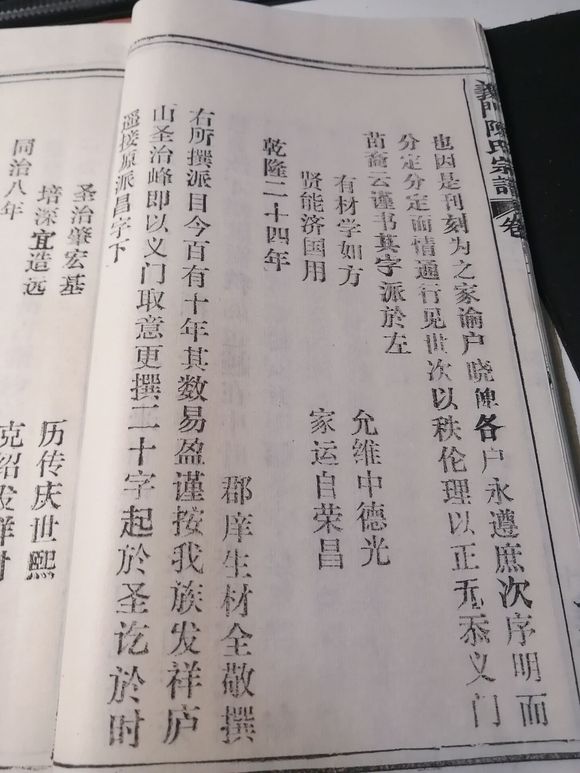 義門陳氏宗譜 卷
也因是刊刻为之家谕户晓俾各户永遵庶次序明而
分定分定而情通行见世次以秩伦理以正无忝义门
苗裔云谨书其字派於左
有材学如方 允维中德光
贤能济国用 家运自荣昌
乾隆二十四年
郡庠生材全敬撰
右所撰派目今百有十年其数易盈谨按我族发祥庐
山圣治峰即以义门取意更撰二十字起於圣讫於时
遥接原派昌字下
圣治肇宏基 历传庆世熙
培深宜造远 克绍发祥时
同治八年